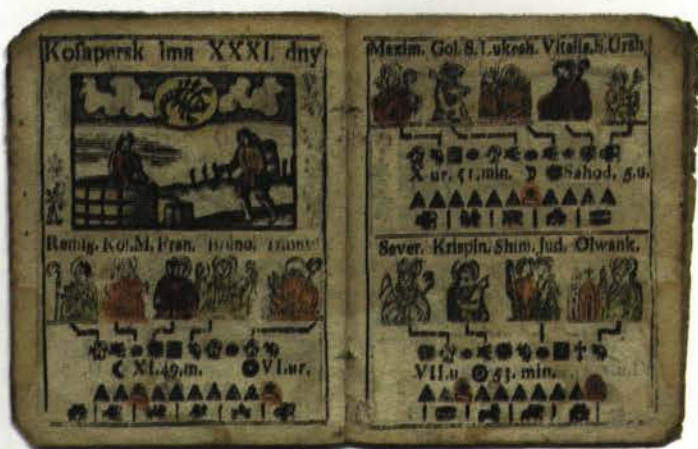 Kosapersk ima XXXI. dny
Remig. Rof. M. Fran. Bruno.
☾ XI. 49. m. VI. ur.
Maxim. Gol. S. Lukesh. Vitalis. S. Ursh.
X ur. 51. min. ☽ Sahod. 5. u.
Sever. Krispin. Shim. Jud. Olwank.
VII. u 53. min.